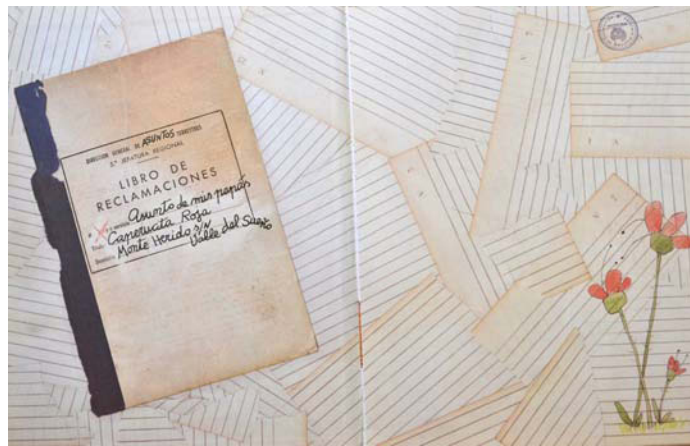 DIRECCION GENERAL DE ASUNTOS TERRESTRES
5.ª JEFATURA REGIONAL
LIBRO DE
RECLAMACIONES
Asunto de mis papás
Titular Caperucita Roja
Domicilio Monte Herido s/n
Valle del Sueño